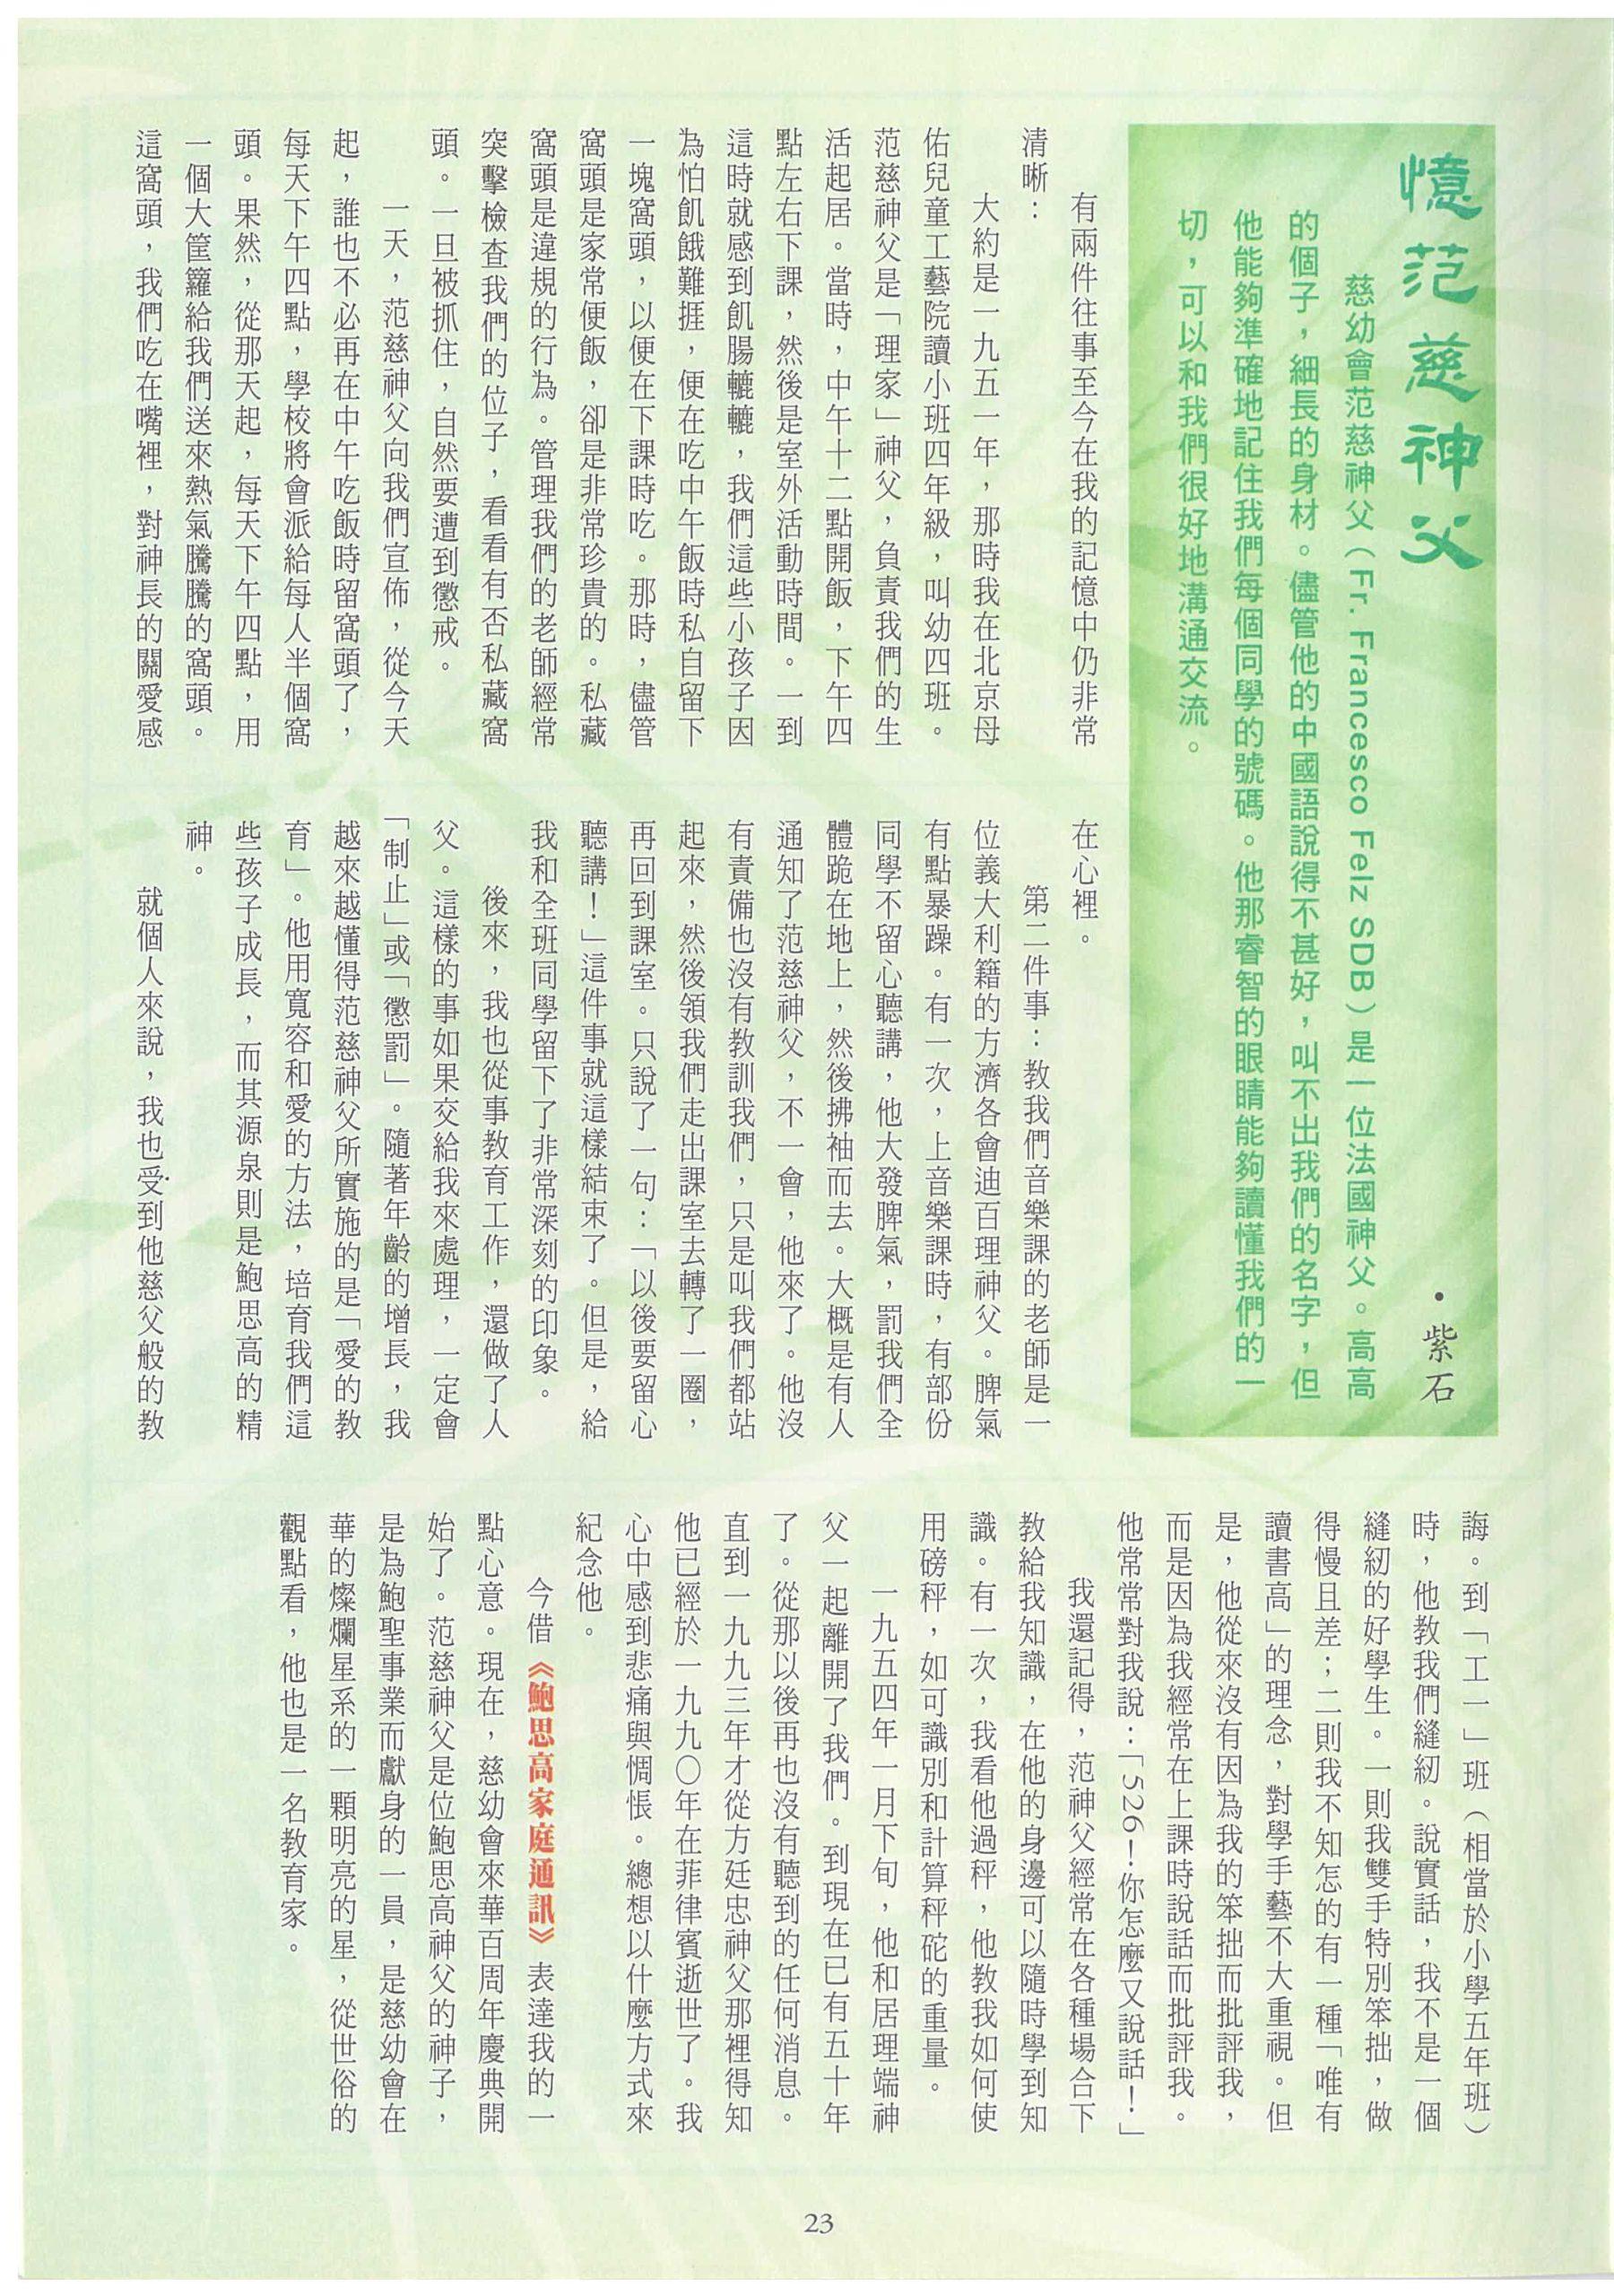 憶范慈神父
• 紫石
慈幼會范慈神父（Fr. Francesco Felz SDB）是一位法國神父。高高
的個子，細長的身材。儘管他的中國語說得不甚好，叫不出我們的名字，但
他能夠準確地記住我們每個同學的號碼。他那睿智的眼睛能夠讀懂我們的一
切，可以和我們很好地溝通交流。
有兩件往事至今在我的記憶中仍非常
清晰：
大約是一九五一年，那時我在北京母
佑兒童工藝院讀小班四年級，叫幼四班。
范慈神父是「理家」神父，負責我們的生
活起居。當時，中午十二點開飯，下午四
點左右下課，然後是室外活動時間。一到
這時就感到飢腸轆轆，我們這些小孩子因
為怕飢餓難捱，便在吃中午飯時私自留下
一塊窩頭，以便在下課時吃。那時，儘管
窩頭是家常便飯，卻是非常珍貴的。私藏
窩頭是違規的行為。管理我們的老師經常
突擊檢查我們的位子，看看有否私藏窩
頭。一旦被抓住，自然要遭到懲戒。
一天，范慈神父向我們宣佈，從今天
起，誰也不必再在中午吃飯時留窩頭了，
每天下午四點，學校將會派給每人半個窩
頭。果然，從那天起，每天下午四點，用
一個大筐籮給我們送來熱氣騰騰的窩頭。
這窩頭，我們吃在嘴裡，對神長的關愛感
在心裡。
第二件事：教我們音樂課的老師是一
位義大利籍的方濟各會迪百理神父。脾氣
有點暴躁。有一次，上音樂課時，有部份
同學不留心聽講，他大發脾氣，罰我們全
體跪在地上，然後拂袖而去。大概是有人
通知了范慈神父，不一會，他來了。他沒
有責備也沒有教訓我們，只是叫我們都站
起來，然後領我們走出課室去轉了一圈，
再回到課室。只說了一句：「以後要留心
聽講！」這件事就這樣結束了。但是，給
我和全班同學留下了非常深刻的印象。
後來，我也從事教育工作，還做了人
父。這樣的事如果交給我來處理，一定會
「制止」或「懲罰」。隨著年齡的增長，我
越來越懂得范慈神父所實施的是「愛的教
育」。他用寬容和愛的方法，培育我們這
些孩子成長，而其源泉則是鮑思高的精
神。
就個人來說，我也受到他慈父般的教
誨。到「工一」班（相當於小學五年班）
時，他教我們縫紉。說實話，我不是一個
縫紉的好學生。一則我雙手特別笨拙，做
得慢且差；二則我不知怎的有一種「唯有
讀書高」的理念，對學手藝不大重視。但
是，他從來沒有因為我的笨拙而批評我，
而是因為我經常在上課時說話而批評我。
他常常對我說：「526！你怎麼又說話！」
我還記得，范神父經常在各種場合下
教給我知識，在他的身邊可以隨時學到知
識。有一次，我看他過秤，他教我如何使
用磅秤，如可識別和計算秤砣的重量。
一九五四年一月下旬，他和居理端神
父一起離開了我們。到現在已有五十年
了。從那以後再也沒有聽到的任何消息。
直到一九九三年才從方廷忠神父那裡得知
他已經於一九九〇年在菲律賓逝世了。我
心中感到悲痛與惆悵。總想以什麼方式來
紀念他。
今借《鮑思高家庭通訊》表達我的一
點心意。現在，慈幼會來華百周年慶典開
始了。范慈神父是位鮑思高神父的神子，
是為鮑聖事業而獻身的一員，是慈幼會在
華的燦爛星系的一顆明亮的星，從世俗的
觀點看，他也是一名教育家。
23